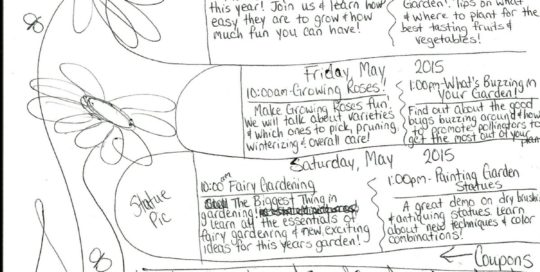 this year! Join us & learn how
easy they are to grow & how
much fun you can have!
Garden!. Tips on what
& where to plant for the
best tasting fruits &
vegetables!
Friday, May 2015
10:00am - Growing Roses!
Make Growing Roses fun.
We will talk about varieties
& which ones to pick, pruning,
winterizing & overall care!
1:00pm - What's Buzzing in
Your Garden!
Find out about the good
bugs buzzing around & how
to promote pollinators to
get the most out of your
plants
Saturday, May 2015
Statue
Pic
10:00am Fairy Gardening
The Biggest Thing in
gardening!
Learn all the essentials of
fairy gardening & new, exciting
ideas for this years garden!
1:00pm - Painting Garden
Statues
A great demo on dry brushing
& antiquing statues. Learn
about new techniques & color
combinations!
Coupons